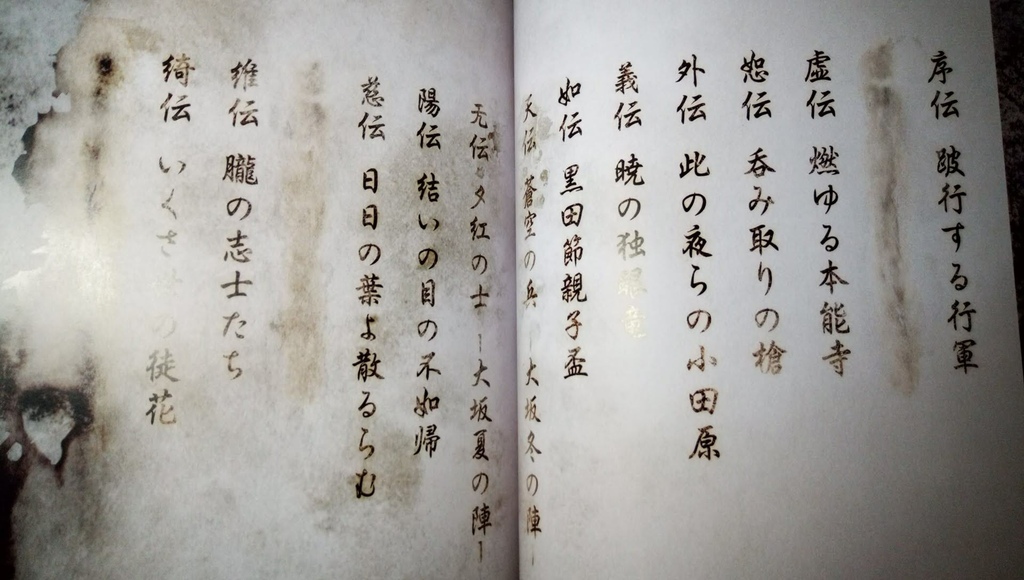 序伝 跛行する行軍
虚伝 燃ゆる本能寺
恕伝 呑み取りの槍
外伝 此の夜らの小田原
義伝 暁の独眼竜
如伝 黒田節親子盃
天伝 蒼空の兵 -大坂冬の陣-
无伝 夕紅の士 -大坂夏の陣-
陽伝 結いの目の不如帰
慈伝 日日の葉よ散るらむ
維伝 朧の志士たち
綺伝 いくさ の徒花